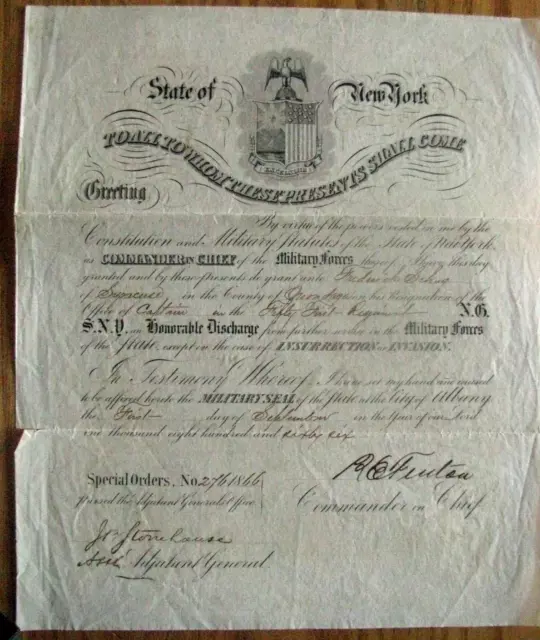 State of New York
TO ALL TO WHOM THESE PRESENTS SHALL COME
Greeting
By virtue of the power vested in me by the
Constitution and Military Statutes of the State of New York,
as COMMANDER IN CHIEF of the Military Forces thereof I have this day
granted and by these presents do grant unto Fredrick
of Syracuse in the County of Onondaga on his Resignation of the
Office of Captain in the Fifty First Regiment N.G.
S.N.Y. an Honorable Discharge from further service in the Military Forces
of the State, except in the case of INSURRECTION or INVASION.
In Testimony Whereof, I have set my hand and caused
to be affixed hereto the MILITARY SEAL of the State at the City of Albany
the First day of September in the Year of our Lord
one thousand eight hundred and sixty six
Special Orders, No. 276 1866
Passed the Adjutant General's Office
R E Fenton
Commander in Chief
Jn Stonehouse
Asst Adjutant General